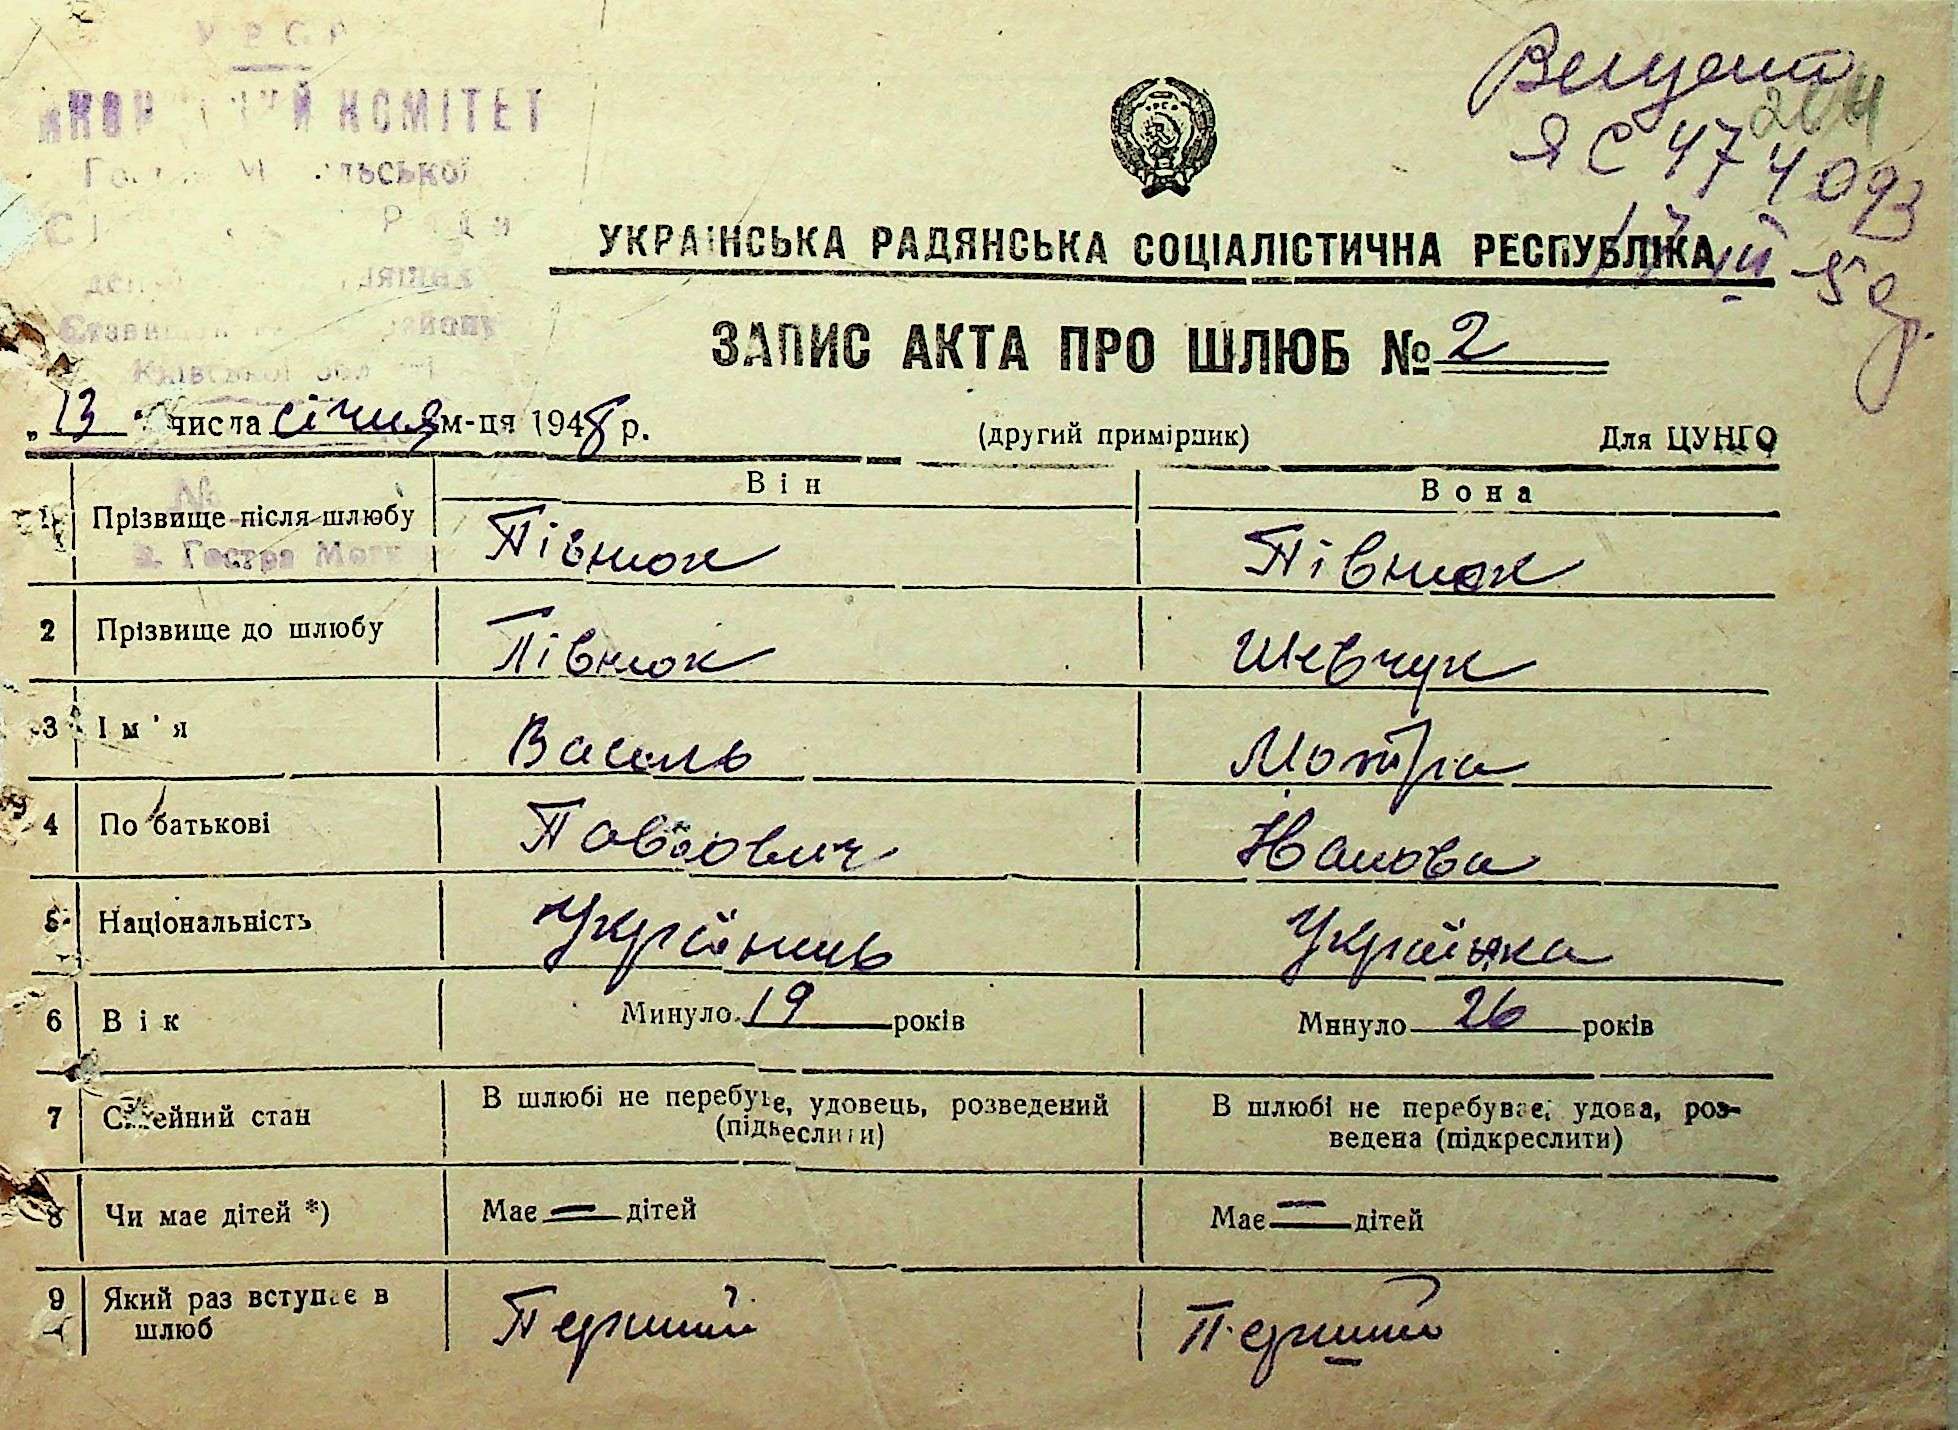 УРСР
КОМІТЕТ
Київської
с. Гостра
Вищена
ЯС 474093
204
УКРАЇНСЬКА РАДЯНСЬКА СОЦІАЛІСТИЧНА РЕСПУБЛІКА
ЗАПИС АКТА ПРО ШЛЮБ № 2
„13“ числа січня м-ця 1948 р. (другий примірник) Для ЦУНГО
Він Вона
1 Прізвище після шлюбу Півнюк Півнюк
2 Прізвище до шлюбу Півнюк Шевчук
3 Ім'я Василь Мотря
4 По батькові Павлович Іванова
5 Національність Українець Українка
6 Вік Минуло 19 років Минуло 26 років
7 Сімейний стан В шлюбі не перебуває, удовець, розведений В шлюбі не перебуває, удова, роз-
(підкреслити) ведена (підкреслити)
8 Чи має дітей *) Має — дітей Має — дітей
9 Який раз вступає в Перший Перший
шлюб